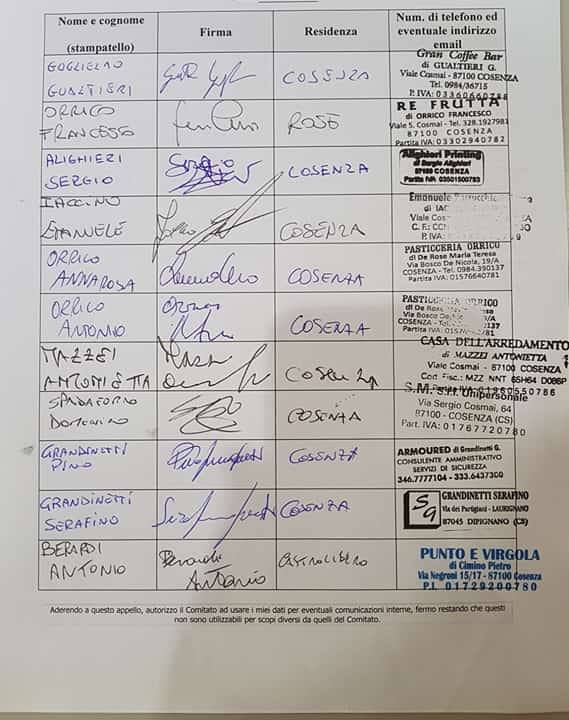 Nome e cognome
(stampatello)
Firma
Residenza
Num. di telefono ed
eventuale indirizzo
email
GUGLIELMO
GUALTIERI
COSENZA
Gran Coffee Bar
di GUALTIERI G.
Viale Cosmai - 87100 COSENZA
Tel. 0984/36715
P. IVA: 03360660788
ORRICO
FRANCESCO
ROSE
RE FRUTTA
di ORRICO FRANCESCO
Viale S. Cosmai - Tel. 328.1927981
87100 COSENZA
Partita IVA: 03302940782
ALIGHIERI
SERGIO
Sergio
COSENZA
Alighieri Printing
di Sergio Alighieri
87100 COSENZA
Partita IVA 03501500783
IACCINO
EMANUELE
COSENZA
Emanuele
di IAC
Viale Cos
C. F.: CCN
P. IVA:
ORRICO
ANNAROSA
COSENZA
PASTICCERIA ORRICO
di De Rose Maria Teresa
Via Bosco De Nicola, 19/A
COSENZA - Tel. 0984.390137
Partita IVA: 01576640781
ORRICO
ANTONIO
COSENZA
PASTICCERIA ORRICO
di De Rose Maria Teresa
Via Bosco De 19/A
COSENZA 137
Partita IVA: 01
MAZZEI
ANTONIETTA
COSENZA
CASA DELL'ARREDAMENTO
di MAZZEI ANTONIETTA
Viale Cosmai - 87100 COSENZA
Cod. Fisc.: MZZ NNT 65H64 D086P
P. IVA 01960550786
SPADAFORA
DOMENICO
COSENZA
S.M. s.r.l. Unipersonale
Via Sergio Cosmai, 64
87100 - COSENZA (CS)
Part. IVA: 01767720780
GRANDINETTI
PINO
COSENZA
ARMOURED di Grandinetti G.
CONSULENTE AMMINISTRATIVO
SERVIZI DI SICUREZZA
346.7777104 - 333.6437300
GRANDINETTI
SERAFINO
COSENZA
SG
GRANDINETTI SERAFINO
Via dei Partigiani - LAURIGNANO
87045 DIPIGNANO (CS)
BERARDI
ANTONIO
Berardi
Antonio
CASTROLIBERO
PUNTO E VIRGOLA
di Cimino Pietro
Via Negroni 15/17 - 87100 Cosenza
P.I. 01729200780
Aderendo a questo appello, autorizzo il Comitato ad usare i miei dati per eventuali comunicazioni interne, fermo restando che questi
non sono utilizzabili per scopi diversi da quelli del Comitato.